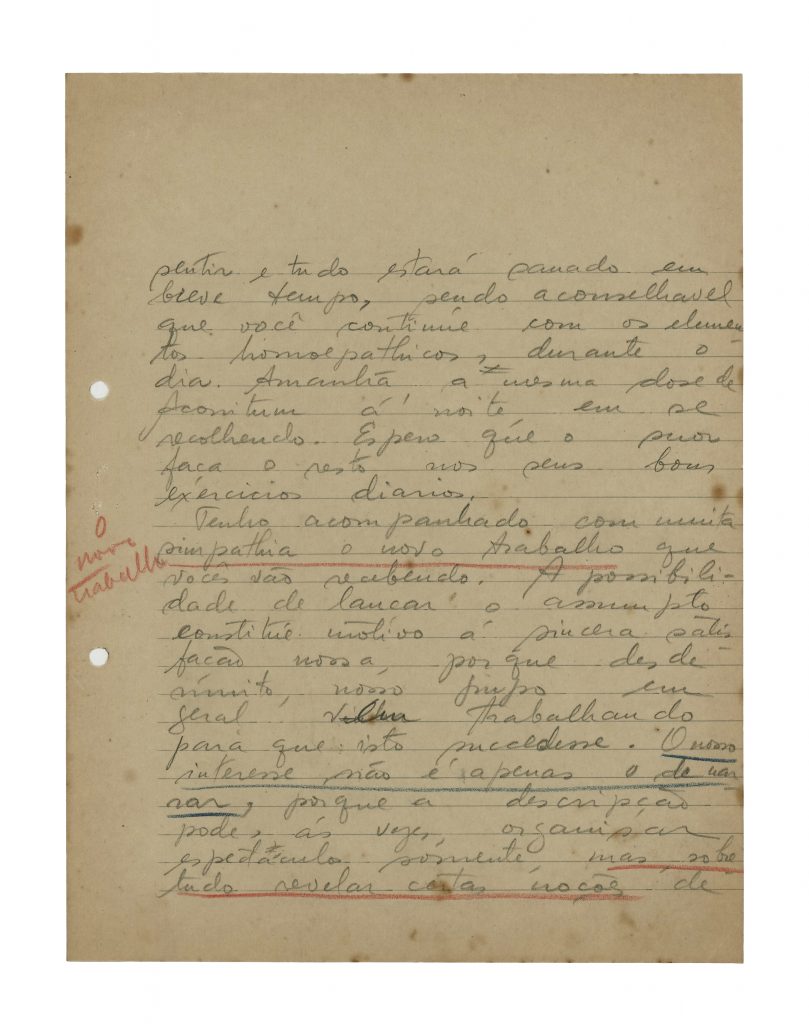 sentir e tudo estará sanado em
breve tempo, sendo aconselhavel
que você continúe com os elemen
tos homoepathicos, durante o
dia. Amanhã a mesma dose de
Aconitum á noite em se
recolhendo. Espero que o suor
faca o resto nos seus bons
exercicios diarios.
Tenho acompanhado com muita
simpathia o novo trabalho que
vocês vão recebendo. A possibili-
dade de lancar o assumpto
constitúe motivo á sincera satis
facão nossa, porque desde
muito, nosso grupo em
geral vem trabalhando
para que isto succedesse. O nosso
interesse não é apenas o de nar
rar, porque a descripção
pode, ás vezes, organisar
espectaculo sómente, mas sobre
tudo revelar certas noções de
O
novo
trabalho